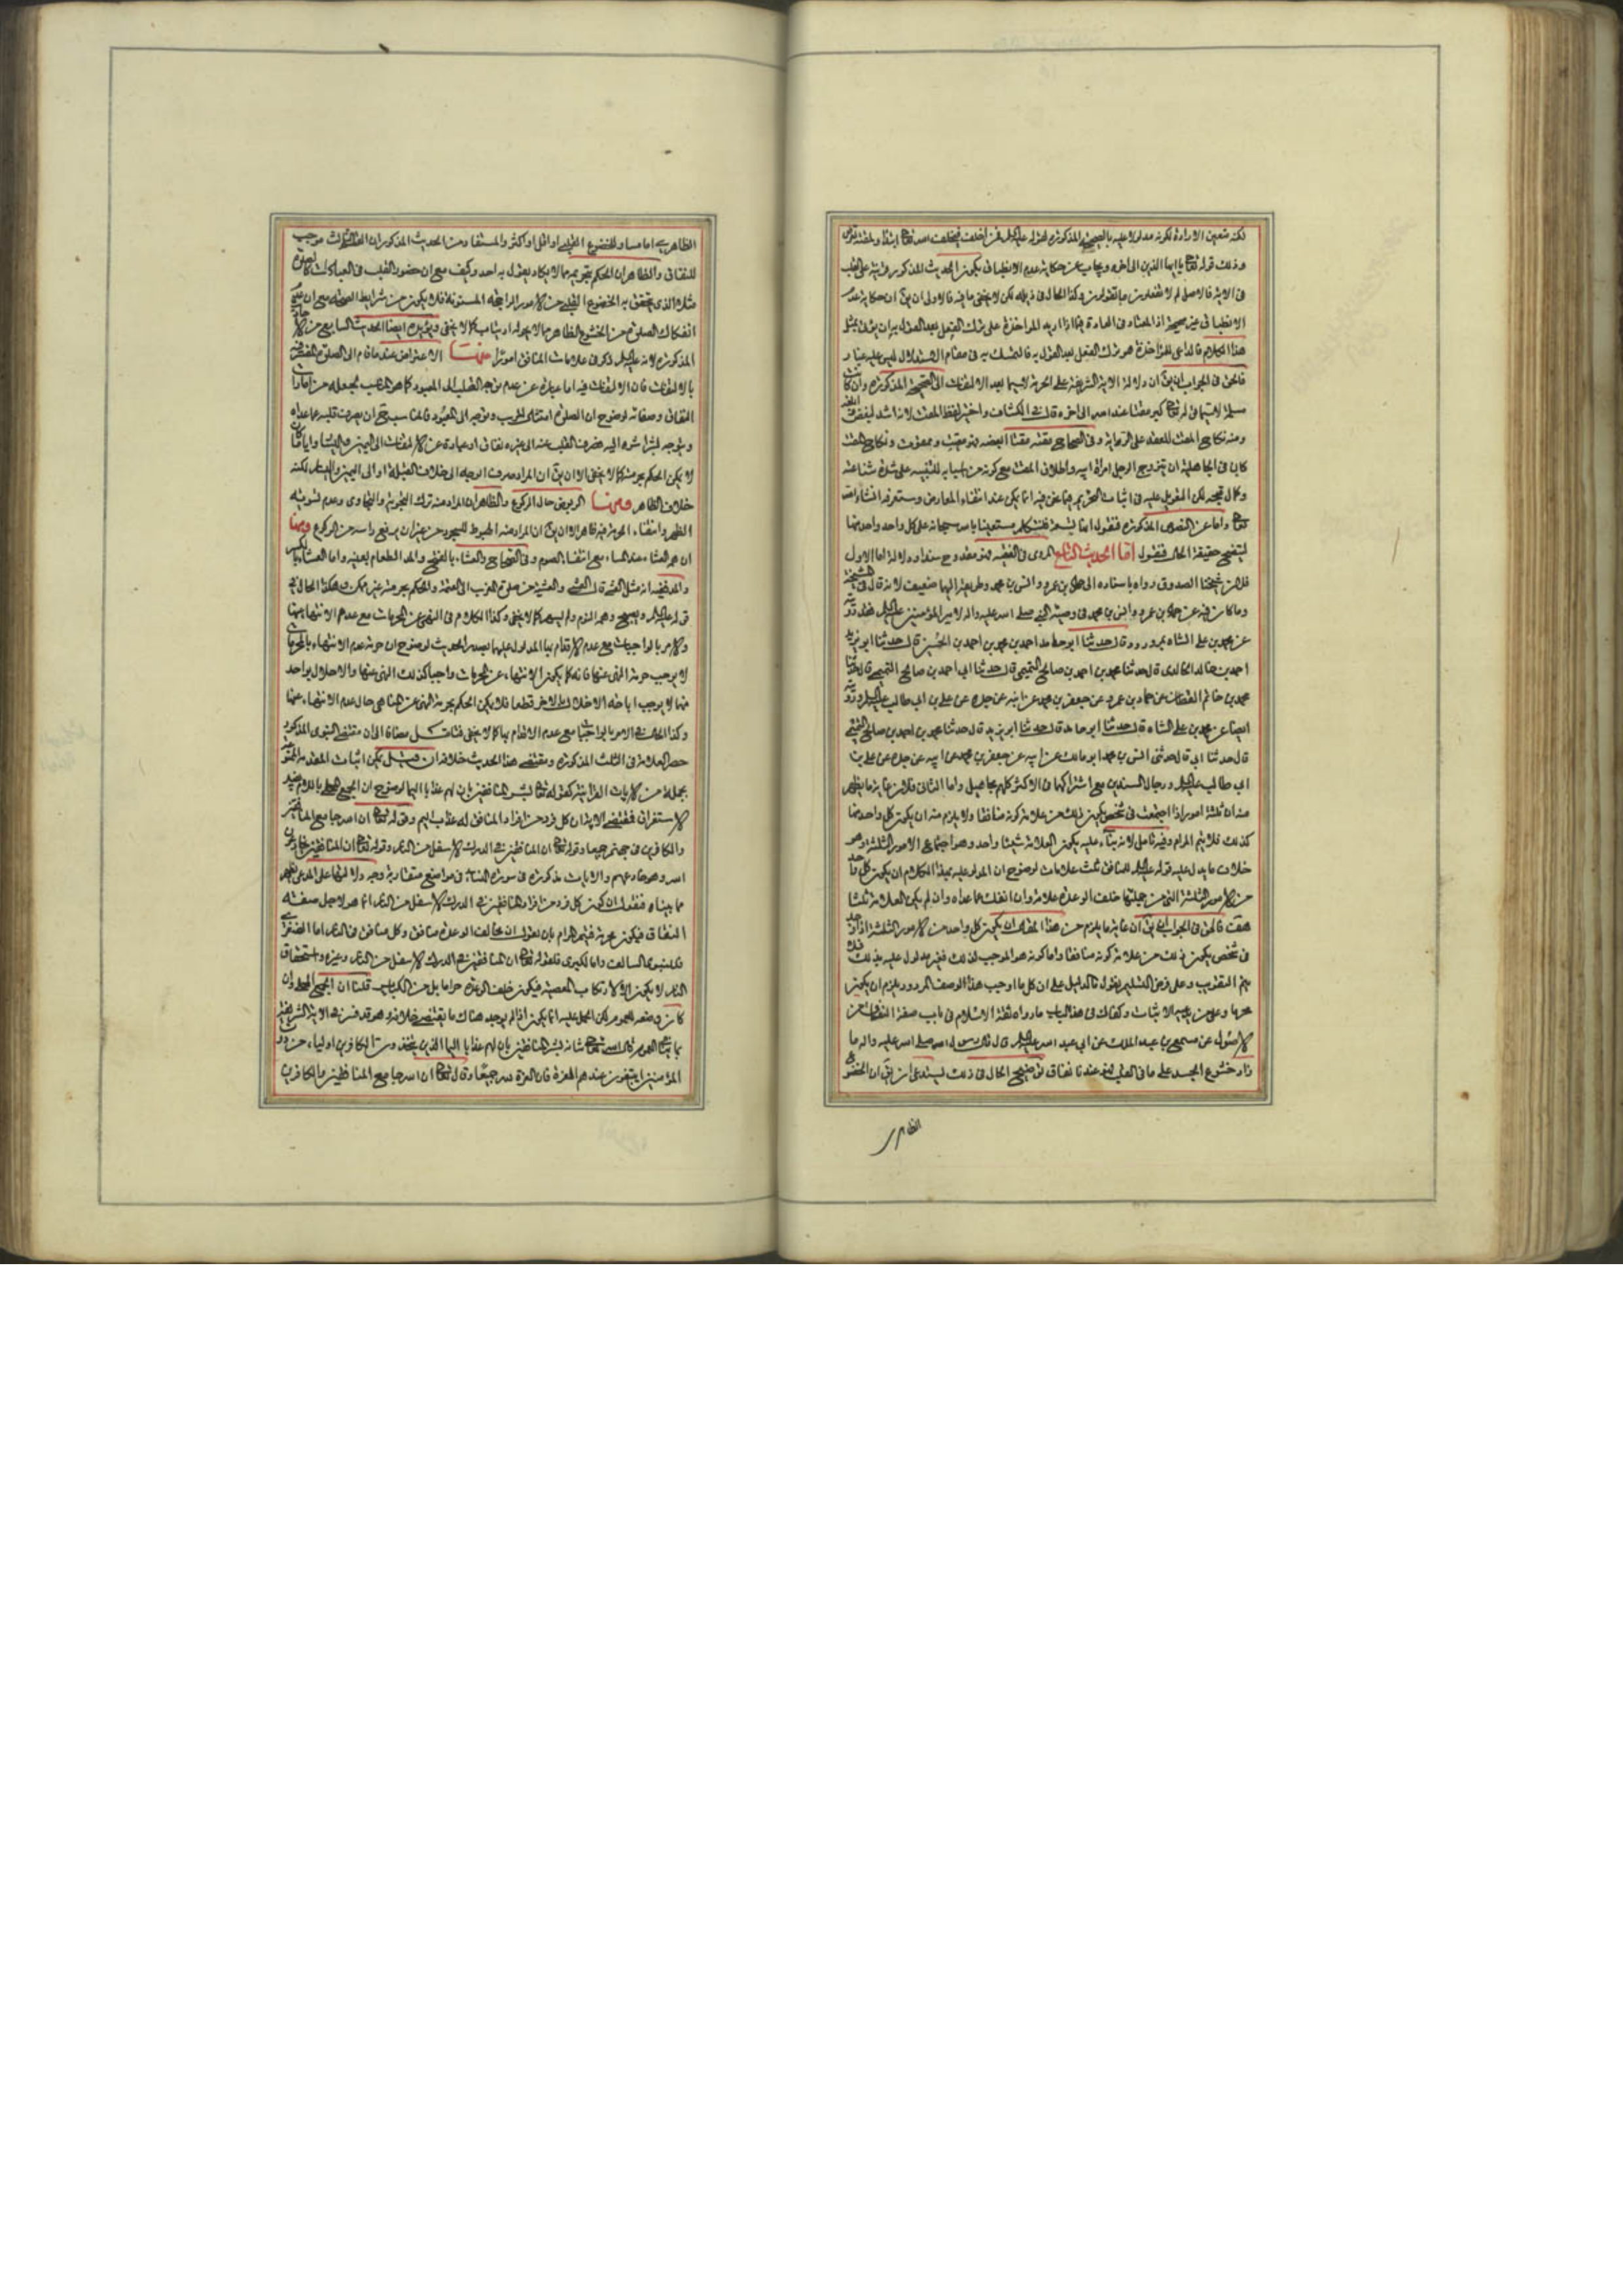 لكنه متعين الارادة لكونه مدلولا عليه بالصحيحة المذكورة لقوله عليه السلم فمن اخلف فبخلف الله تعالى ابتدأ ولمقته تعرض
وذلك قوله تعالى يا ايها الذين الى اخره ويجاب عن حكاية عدم الانطباق بكون الحديث المذكور قرينة على القلب
فى الاية فالاصل لم لا تفعلون ما تقولون وكذا الحال فى ذيله لكن لا يخفى ما فيه فالاولى ان يق ان حكاية عدم
الانطباق غير صحيحة اذ المعتاد فى العادة فيما اذا اريد المؤاخذة على ترك الفعل بعد القول به ان يؤتى بمثل
هذا الكلام فالداعى للمؤاخذة هو ترك الفعل بعد القول به فالتمسك به فى مقام الاستدلال ليس عليه غبار
فالحق فى الجواب ان يق ان دلالة الاية الشريفة على الحرمة لاسيما بعد الالتفات الى الصحيحة المذكورة وان كانت
مسلمة لاسيما فى قوله تعالى كبر مقتا عند الله الى اخره قال فى الكشاف واختير لفظ المقت لانه اشد البغض
ومنه نكاح المقت للعقد على الرابة وفى الصحاح مقته مقتا ابغضه فهو مقيت وممقوت ونكاح المقت
كان فى الجاهلية ان يتزوج الرجل امراة ابيه واطلاق المقت مع كونه من اسبابه للتنبيه على شدة شناعته
وكمال قبحه لكن المعول عليه فى اثبات التحريم بما عن فيه انما يكن عند انتفاء المعارض وستعرفه انشاء الله
تعالى واما عن النصوص المذكورة فنقول انما يستعز فلنتكلم مستعينا بالله سبحانه على كل واحد واحد منها
ليتضح حقيقة الحال فنقول اما الحديث التاسع المروى فى الفقيه فهو مقدوح سندا ودلالة اما الاول
فلان شيخنا الصدوق رواه باسناده الى حماد بن عمرو وانس بن محمد وطريقه اليهما ضعيف لانه قال فى المشيخة
وما كان فيه عن حماد بن عمرو وانس بن محمد فى وصية النبى صلى الله عليه واله لامير المؤمنين عليه السلم فقد رويته
عن محمد بن على الشاه بمرورود قال حدثنا ابو حامد احمد بن محمد بن احمد بن الحسين قال حدثنا ابو يزيد
احمد بن خالد الخالدى قال حدثنا محمد بن احمد بن صالح التميمى قال حدثنا ابى احمد بن صالح التميمى قال حدثنا
محمد بن حاتم القطان عن حماد بن عمرو عن جعفر بن محمد عن ابيه عن جده عن على بن ابى طالب عليه السلم ورويته
ايضا عن محمد بن على الشاه قال حدثنا ابو حامد قال حدثنا ابو يزيد قال حدثنا محمد بن احمد بن صالح التميمى
قال حدثنا ابى قال حدثنى انس بن محمد ابو مالك عن ابيه عن جعفر بن محمد عن ابيه عن جده عن على بن
ابى طالب عليه السلم ورجال السندين مع اشتراكهما فى الاكثر كلهم مجاهيل واما الثانى فلان غاية ما يظهر
منه ان ثلثة امور اذا اجتمعت فى شخص يكون ذلك من علامة كونه منافقا ولا يلزم منه ان يكون كل واحد منها
كذلك فلا يتم المرام وفيه تامل لانه بناء عليه يكون العلامة شيئا واحد وهو اجتماع الامور الثلثة وهو
خلاف ما يدل عليه قوله عليه السلم للمنافق ثلث علامات لوضوح ان المدلول عليه بهذا الكلام ان يكون كل واحد
من الامور الثلثة التى من جملتها خلف الوعد علامة وان انفك عما عداه وان لم يكن العلامة ثلثا
هف فالحق فى الجواب ان يق ان غاية ما يلزم من هذا المقال ان يكون كل واحد من الامور الثلثة اذا وجد
فى شخص يكون ذلك من علامة كونه منافقا واما كونه هو الموجب لذلك فغير مدلول عليه بذلك فلا
يتم التقريب وعلى فرض التسليم نقول لا دليل على ان كل ما اوجب هذا الوصف المردود يلزم ان يكون
محرما وعلى مدعيه الاثبات وكفاك فى هذا الباب ما رواه ثقة الاسلام فى باب صفة النفاق من
الاصول عن مسمع بن عبد الملك عن ابى عبد الله عليه السلم قال قال رسول الله صلى الله عليه واله ما
زاد خشوع الجسد على ما فى القلب فهو عندنا نفاق توضيح الحال فى ذلك يستدعى ان يق ان الخضوع
الظاهر
الظاهرى اما مساو للخضوع القلبى او اقل او اكثر والمستفاد من الحديث المذكور ان الثالث موجب
للنفاق والظاهر ان الحكم بتحريمه مما لا يكاد يقول به احد وكيف مع ان حضور القلب فى العبادات كالصلوة
مثلا الذى يتحقق به الخضوع القلبى من الامور الراجحة المسنونة فلا يكون من شرايط الصحة مع ان
انفكاك الصلوة من الخشوع الظاهر مما لا يجوز ارتيابا كما لا يخفى ويؤيده ايضا الحديث السابع من
المذكورة لانه عليه السلم ذكر فى علامات المنافق امورا منها الاعتراض عند ما قام الى الصلوة المفسر فيه
بالالتفات فان الالتفات فيه اما عبارة عن عدم توجه القلب الى المعبود كما هو المناسب لجعله من امارات
النفاق وصفاته لوضوح ان الصلوة امتثال للرب وتوجه الى المعبود فالمناسب ح ان يصرف قلبه عما عداه
ويتوجه بشراشره اليه فصرف القلب عنه الى غيره نفاق او عبارة عن الالتفات الى اليمين واليسار وايا ما كان
لا يمكن الحكم بحرمته كما لا يخفى الا ان يق ان المراد صرف الوجه الى خلاف القبلة او الى اليمين واليسار لكنه
خلاف الظاهر ومنها الربوض حال الركوع والظاهر ان المراد منه ترك التجويد والتهاوى وعدم تسوية
الظهر وانتفاء الحرمة فيه ظاهر الا ان يق ان المراد منه الهبوط للسجود من غير ان يرفع راسه من الركوع ومنها
ان همه العشاء عند المساء مع انتفاء الصوم وفى الصحاح والعشاء بالفتح والمد الطعام بعينه واما العشاء بالكسر
والمد فهو انه مثل العشى قال العشى والعشية من صلوة المغرب الى العتمة والحكم بحرمته غير ممكن وهكذا الحال فى
قوله عليه السلم ويصبح وهمه النوم ولم يسهر كما لا يخفى وكذا الكلام فى النهى عن المحرمات مع عدم الانتهاء عنها
والامر بالواجبات مع عدم الاقدام بها المدلول عليهما بصدر الحديث لوضوح ان حرمة عدم الانتهاء بالمحرمات
لا يوجب حرمة النهى عنها فانه كما يكون الانتهاء عن المحرمات واجبا كذلك النهى عنها والاخلال بواحد
منها لا يوجب اباحة الاخلال بالاخر قطعا فلا يمكن الحكم بحرمة النهى عن المناهى حال عدم الانتهاء عنها
وكذا الحال فى الامر بالواجبات مع عدم الاقدام بها كما لا يخفى فتامل مضافا الى ان مقتضى النبوى المذكور
حصر العلامة فى الثلث المذكورة ومقتضى هذا الحديث خلافه ان قيل يمكن اثبات المقدمة
بجملة من الايات القرانية كقوله تعالى بشر المنافقين بان لهم عذابا اليما لوضوح ان الجمع المحلى باللام يفيد
الاستغراق فمقتضى الاية ان كل فرد من افراد المنافق له عذاب اليم وقوله تعالى ان الله جامع المنافقين
والكافرين فى جهنم جميعا وقوله تعالى ان المنافقين فى الدرك الاسفل من النار وقوله تعالى ان المنافقين يخادعون
الله وهو خادعهم والايات مذكورة فى سورة النساء فى مواضع متقاربة وجه دلالتها على المدعى يظهر
مما بيناه فنقول ان كون كل فرد من افراد المنافقين فى الدرك الاسفل من النار انما هو لاجل صفة
النفاق فيكون محرمة فيتم المرام بان نقول ان مخالف الوعد منافق وكل منافق فى النار اما الصغرى
فللنبوى السالف واما الكبرى فلقوله تعالى ان المنافقين فى الدرك الاسفل من النار وغيره واستحقاق
النار لا يكون الا لارتكاب المعصية فيكون خلف الوعد حراما بل من الكبائر قلنا ان الجمع المحلى وان
كان يفيد العموم لكن الحمل عليه انما يكون اذا لم يوجد هناك ما يقتضى خلافه وهو قد فسر فى الاية الشريفة
بما يتبع العموم قال الله تعالى شانه بشر المنافقين بان لهم عذابا اليما الذين يتخذون الكافرين اولياء من دون
المؤمنين ايبتغون عندهم العزة فان العزة لله جميعا وقال تعالى ان الله جامع المنافقين والكافرين